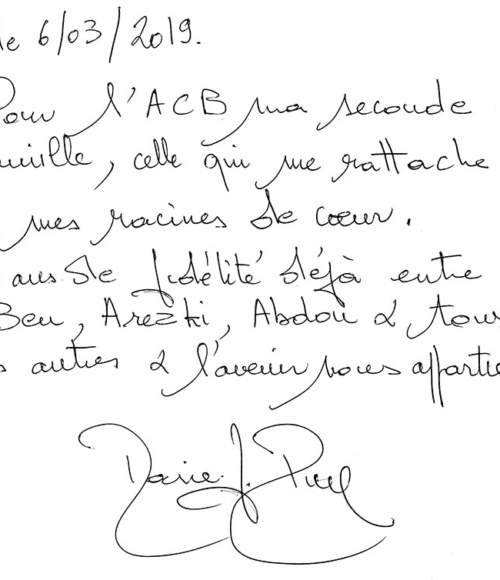 le 6/03/2019.
Pour l'ACB ma seconde
amille, celle qui me rattache
mes racines de cœur.
ans de fidélité déjà entre
Ben, Arezki, Abdou & tous
s autres & l'avenir nous appartie